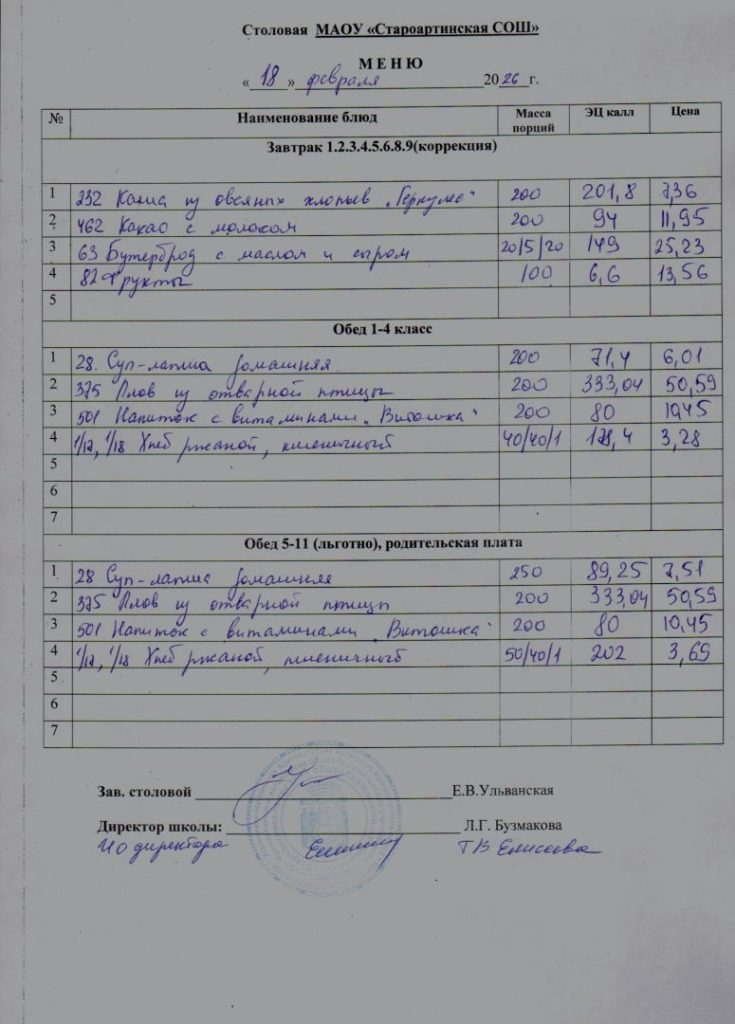 Столовая МАОУ «Староартинская СОШ»
МЕНЮ
«18» февраля 2026 г.
№ Наименование блюд Масса порций ЭЦ калл Цена
Завтрак 1.2.3.4.5.6.8.9(коррекция)
1 232 Каша из овсяных хлопьев „Геркулес" 200 201,8 7,36
2 462 Какао с молоком 200 94 11,95
3 63 Бутерброд с маслом и сыром 20/5/20 149 25,23
4 82 Фрукты 100 6,6 13,56
5
Обед 1-4 класс
1 28. Суп-лапша домашняя 200 71,4 6,01
2 375 Плов из отварной птицы 200 333,04 50,59
3 501 Напиток с витаминами „Витошка" 200 80 10,45
4 1/17, 1/18 Хлеб ржаной, пшеничный 40/40/1 178,4 3,28
5
6
7
Обед 5-11 (льготно), родительская плата
1 28 Суп-лапша домашняя 250 89,25 7,51
2 375 Плов из отварной птицы 200 333,04 50,59
3 501 Напиток с витаминами „Витошка" 200 80 10,45
4 1/17, 1/18 Хлеб ржаной, пшеничный 50/40/1 202 3,69
5
6
7
Зав. столовой Е.В.Ульванская
Директор школы: Л.Г. Бузмакова
ИО директора ТВ Елисеева